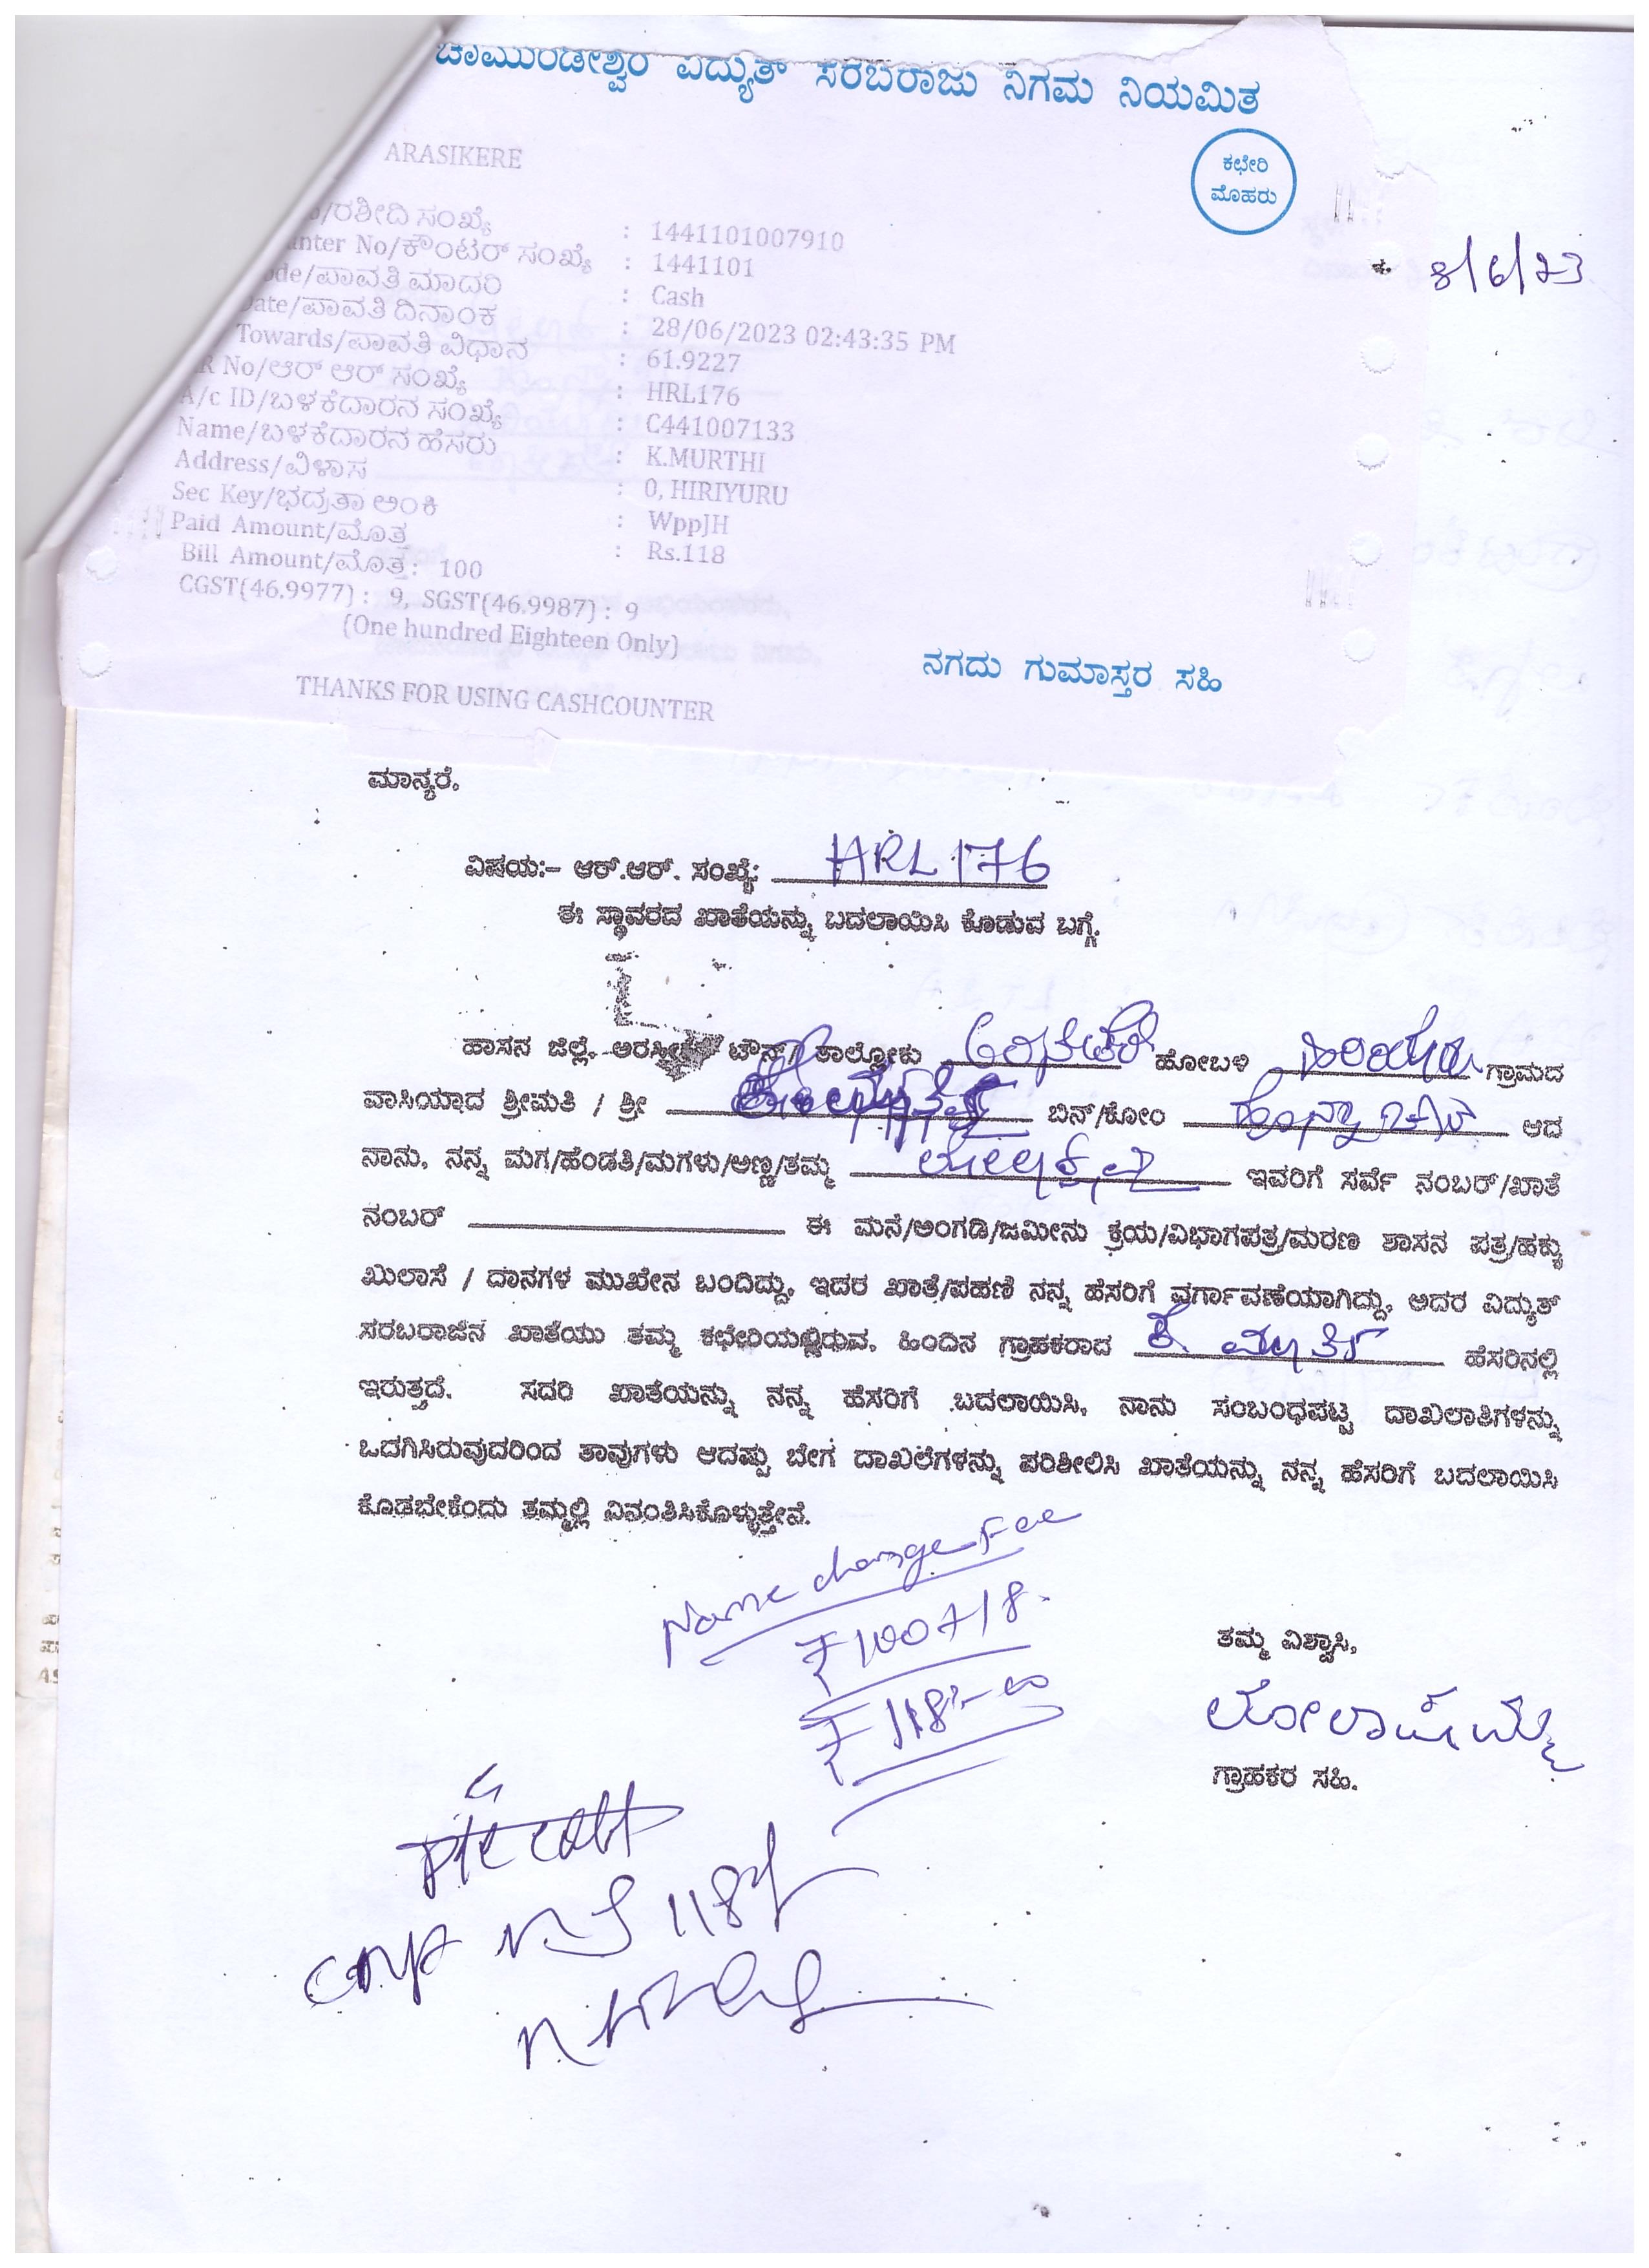 ಚಾಮುಂಡೇಶ್ವರಿ ವಿದ್ಯುತ್ ಸರಬರಾಜು ನಿಗಮ ನಿಯಮಿತ
ARASIKERE
ಕಛೇರಿ
ಮೊಹರು
/ರಶೀದಿ ಸಂಖ್ಯೆ : 1441101007910
unter No/ಕೌಂಟರ್ ಸಂಖ್ಯೆ : 1441101
ode/ಪಾವತಿ ಮಾದರಿ : Cash
Date/ಪಾವತಿ ದಿನಾಂಕ : 28/06/2023 02:43:35 PM
Towards/ಪಾವತಿ ವಿಧಾನ : 61.9227
R No/ಆರ್ ಆರ್ ಸಂಖ್ಯೆ : HRL176
A/c ID/ಬಳಕೆದಾರನ ಸಂಖ್ಯೆ : C441007133
Name/ಬಳಕೆದಾರನ ಹೆಸರು : K.MURTHI
Address/ವಿಳಾಸ : 0, HIRIYURU
Sec Key/ಭದ್ರತಾ ಅಂಕಿ : WppJH
Paid Amount/ಮೊತ್ತ : Rs.118
Bill Amount/ಮೊತ್ತ: 100
CGST(46.9977) : 9, SGST(46.9987) : 9
(One hundred Eighteen Only)
ನಗದು ಗುಮಾಸ್ತರ ಸಹಿ
THANKS FOR USING CASHCOUNTER
8/6/23
ಮಾನ್ಯರೆ,
ವಿಷಯ:- ಆರ್.ಆರ್. ಸಂಖ್ಯೆ: HRL 176
ಈ ಸ್ಥಾವರದ ಖಾತೆಯನ್ನು ಬದಲಾಯಿಸಿ ಕೊಡುವ ಬಗ್ಗೆ.
ಹಾಸನ ಜಿಲ್ಲೆ, ಅರಸೀಕೆರೆ ಟೌನ್/ ತಾಲ್ಲೋಕು ಹೋಬಳಿ ಹಿರಿಯೂರು ಗ್ರಾಮದ
ವಾಸಿಯಾದ ಶ್ರೀಮತಿ / ಶ್ರೀ ಬಿನ್/ಕೋಂ ಆದ
ನಾನು, ನನ್ನ ಮಗ/ಹೆಂಡತಿ/ಮಗಳು/ಅಣ್ಣ/ತಮ್ಮ ಇವರಿಗೆ ಸರ್ವೆ ನಂಬರ್/ಖಾತೆ
ನಂಬರ್ ಈ ಮನೆ/ಅಂಗಡಿ/ಜಮೀನು ಕ್ರಯ/ವಿಭಾಗಪತ್ರ/ಮರಣ ಶಾಸನ ಪತ್ರ/ಹಕ್ಕು
ಖುಲಾಸೆ / ದಾನಗಳ ಮುಖೇನ ಬಂದಿದ್ದು, ಇದರ ಖಾತೆ/ಪಹಣಿ ನನ್ನ ಹೆಸರಿಗೆ ವರ್ಗಾವಣೆಯಾಗಿದ್ದು, ಅದರ ವಿದ್ಯುತ್
ಸರಬರಾಜಿನ ಖಾತೆಯು ತಮ್ಮ ಕಛೇರಿಯಲ್ಲಿರುವ, ಹಿಂದಿನ ಗ್ರಾಹಕರಾದ ಕೆ ಮೂರ್ತಿ ಹೆಸರಿನಲ್ಲಿ
ಇರುತ್ತದೆ. ಸದರಿ ಖಾತೆಯನ್ನು ನನ್ನ ಹೆಸರಿಗೆ ಬದಲಾಯಿಸಿ, ನಾನು ಸಂಬಂಧಪಟ್ಟ ದಾಖಲಾತಿಗಳನ್ನು
ಒದಗಿಸಿರುವುದರಿಂದ ತಾವುಗಳು ಆದಷ್ಟು ಬೇಗ ದಾಖಲೆಗಳನ್ನು ಪರಿಶೀಲಿಸಿ ಖಾತೆಯನ್ನು ನನ್ನ ಹೆಸರಿಗೆ ಬದಲಾಯಿಸಿ
ಕೊಡಬೇಕೆಂದು ತಮ್ಮಲ್ಲಿ ವಿನಂತಿಸಿಕೊಳ್ಳುತ್ತೇನೆ.
Name change Fee
₹ 100+18.
₹ 118=00
ತಮ್ಮ ವಿಶ್ವಾಸಿ,
ಗ್ರಾಹಕರ ಸಹಿ.
118